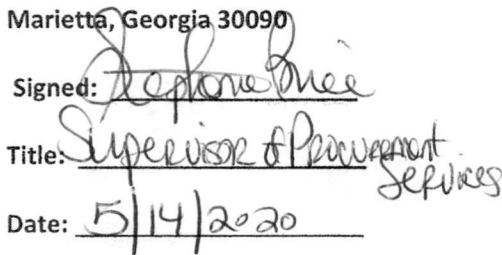 Marietta, Georgia 30090
Signed: Stephanie Brice
Title: Supervisor of Procurement Services
Date: 5/14/2020